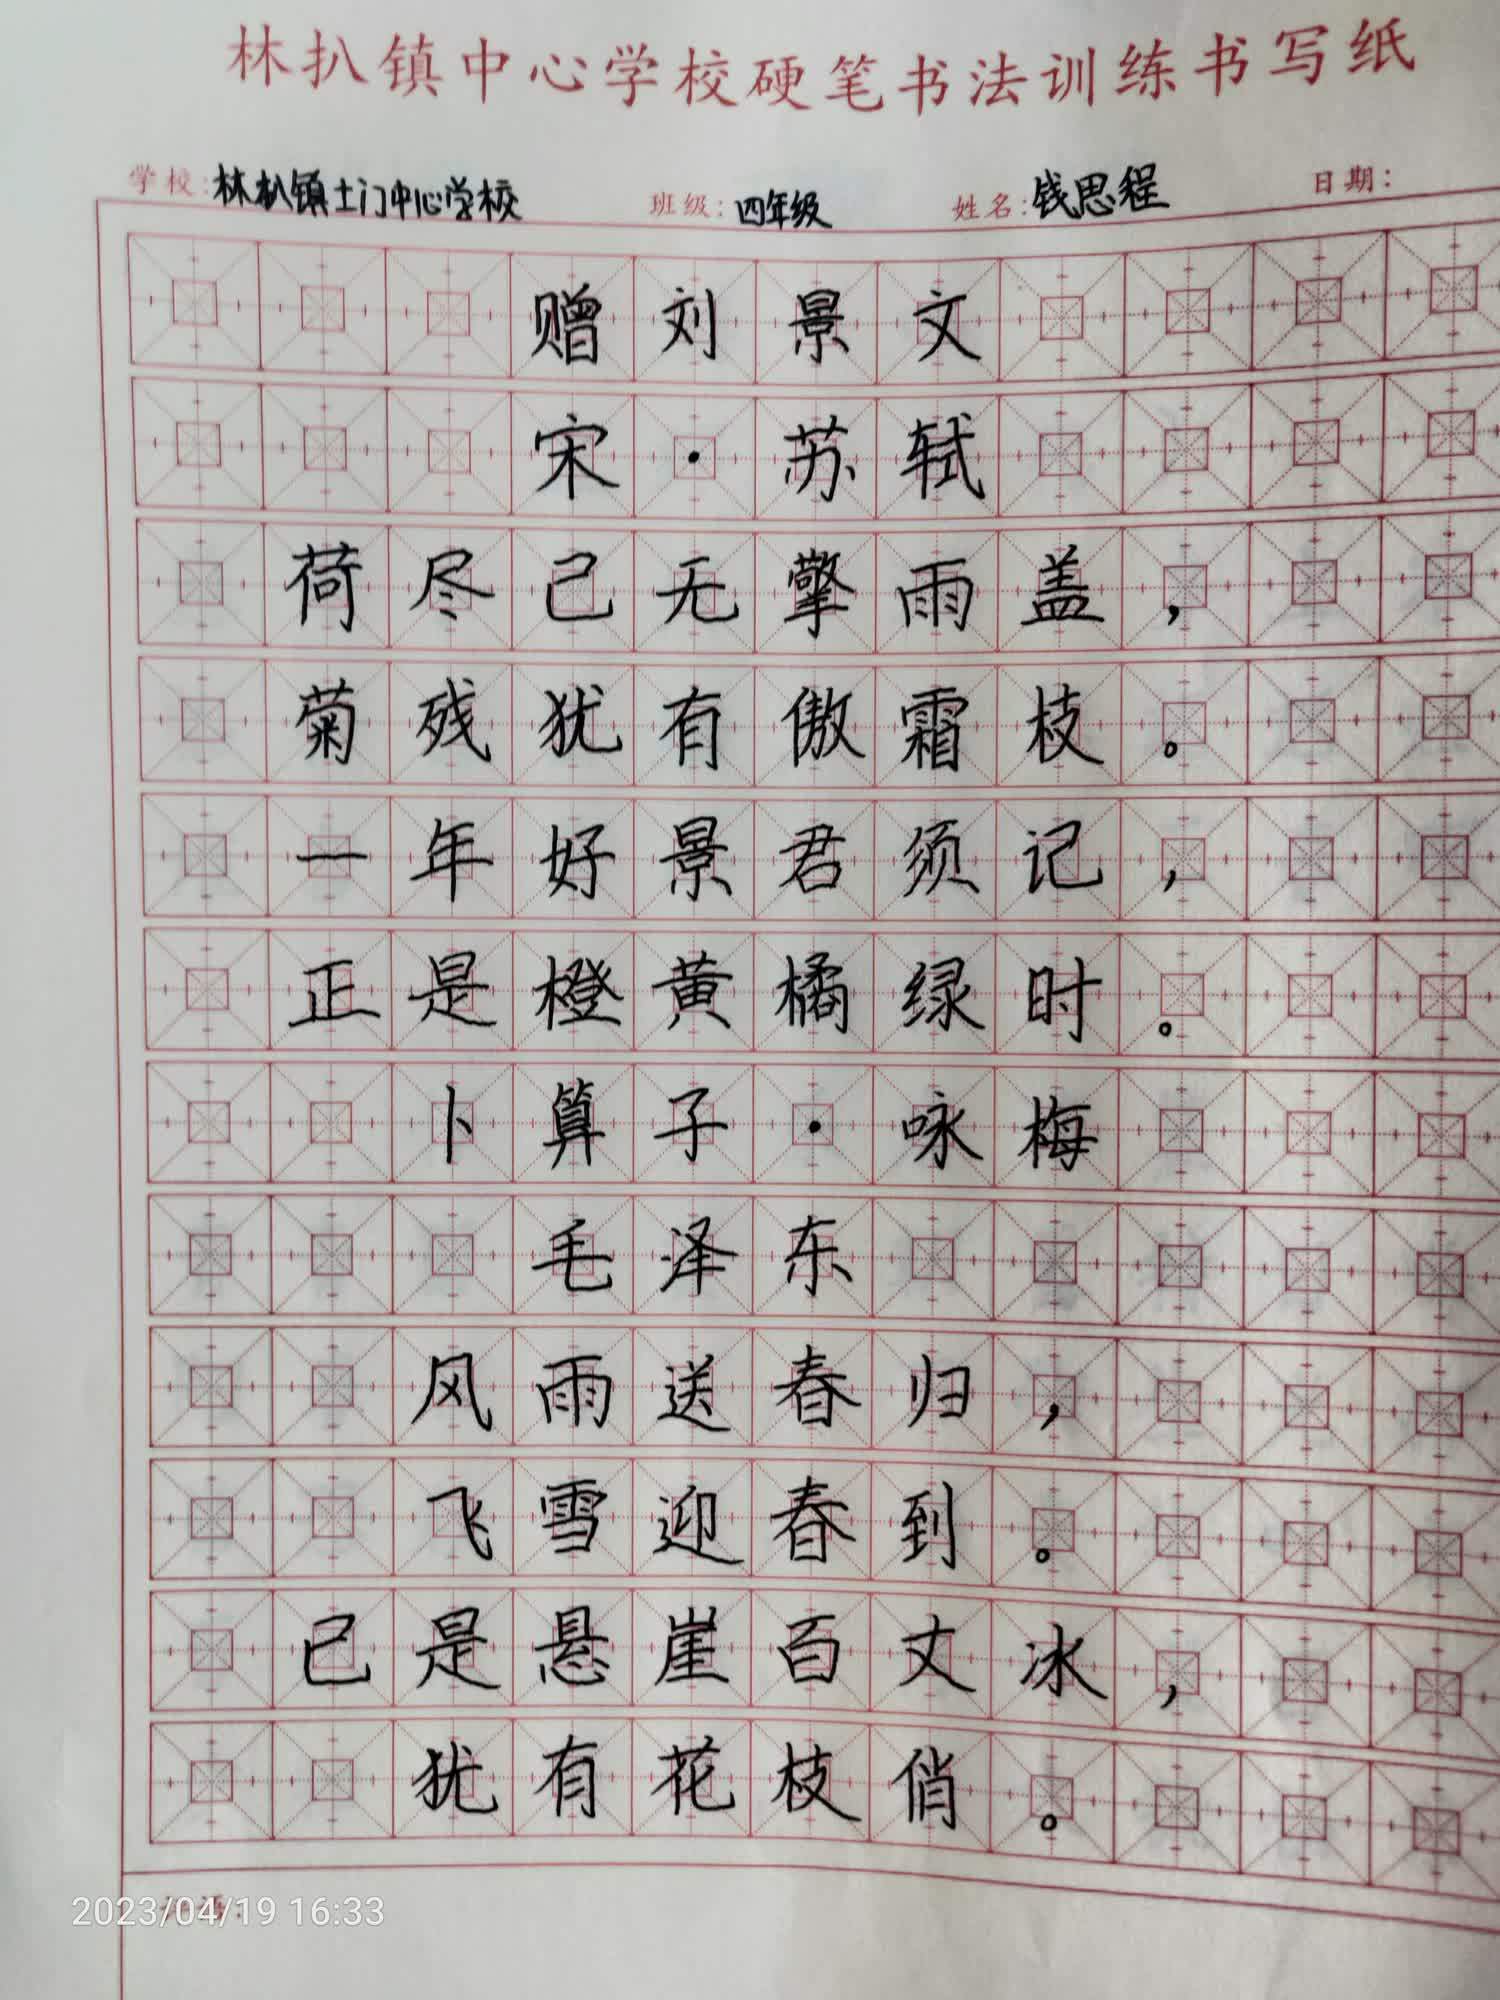 林扒镇中心学校硬笔书法训练书写纸
学校:林扒镇土门中心学校 班级:四年级 姓名:钱思程 日期:
赠刘景文
宋·苏轼
荷尽己无擎雨盖,
菊残犹有傲霜枝。
一年好景君须记,
正是橙黄橘绿时。
卜算子·咏梅
毛泽东
风雨送春归,
飞雪迎春到。
已是悬崖百丈冰,
犹有花枝俏。
2023/04/19 16:33